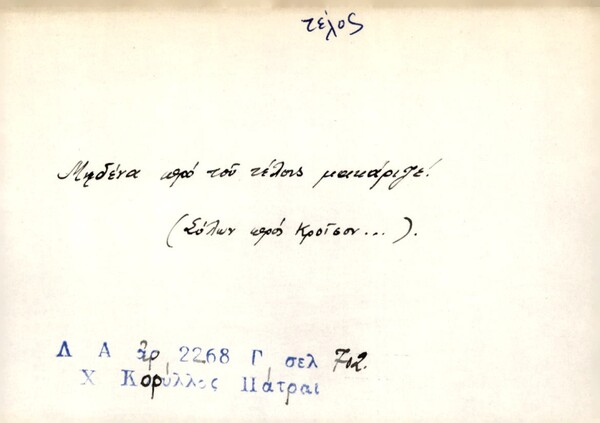 τέλος
Μηδένα πρό τοῦ τέλους μακάριζε!
(Σόλων πρός Κροῖσον...).
Λ Α ἀρ 2268 Γ σελ 702.
Χ Κορύλλος Πάτραι